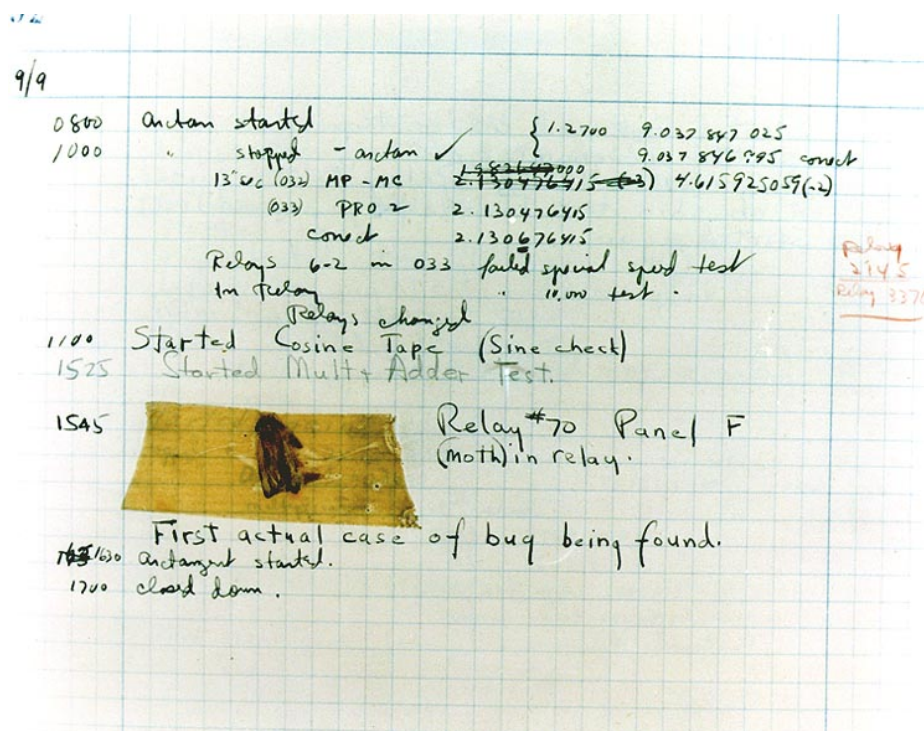 9/9
0800 arctan started { 1.2700 9.037 847 025
1000 " stopped - arctan ✓ 9.037 846 995 correct
13"uc (032) MP - MC 2.130476415 4.615925059(-2)
(033) PRO 2 2.130476415
correct 2.130676415
Relays 6-2 in 033 failed special speed test
In Relay " 10,000 test .
Relays changed
Relay
2145
Relay 3370
1100 Started Cosine Tape (Sine check)
1525 Started Mult+ Adder Test.
1545 Relay #70 Panel F
(moth) in relay.
First actual case of bug being found.
1630 arctangent started.
1700 closed down.